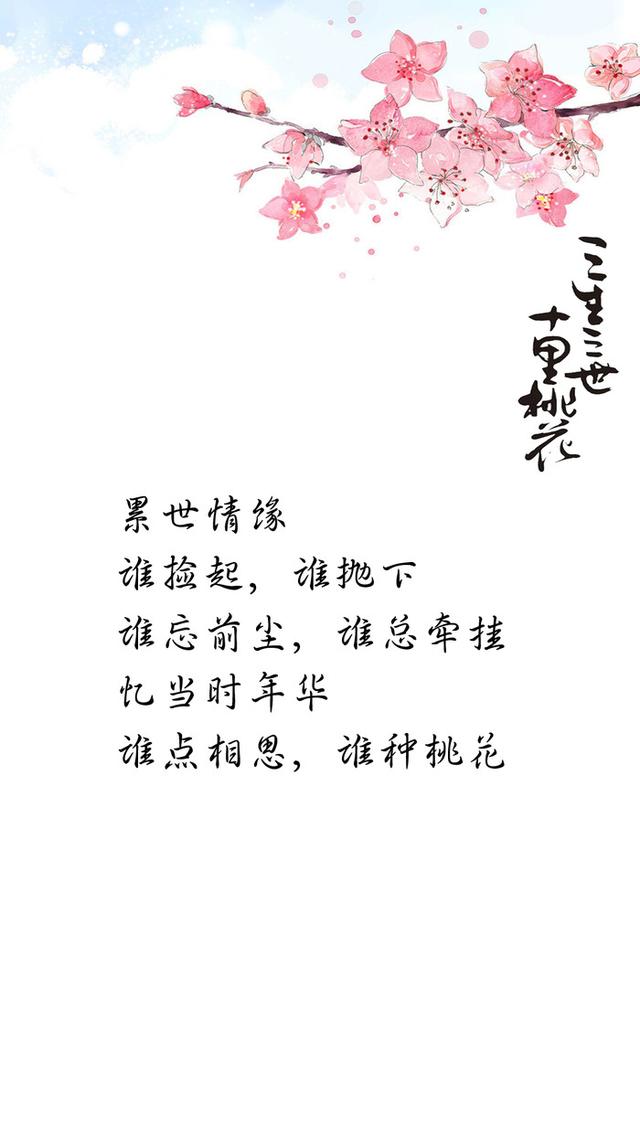 三生三世
十里桃花
累世情缘
谁捡起，谁抛下
谁忘前尘，谁总牵挂
忆当时年华
谁点相思，谁种桃花